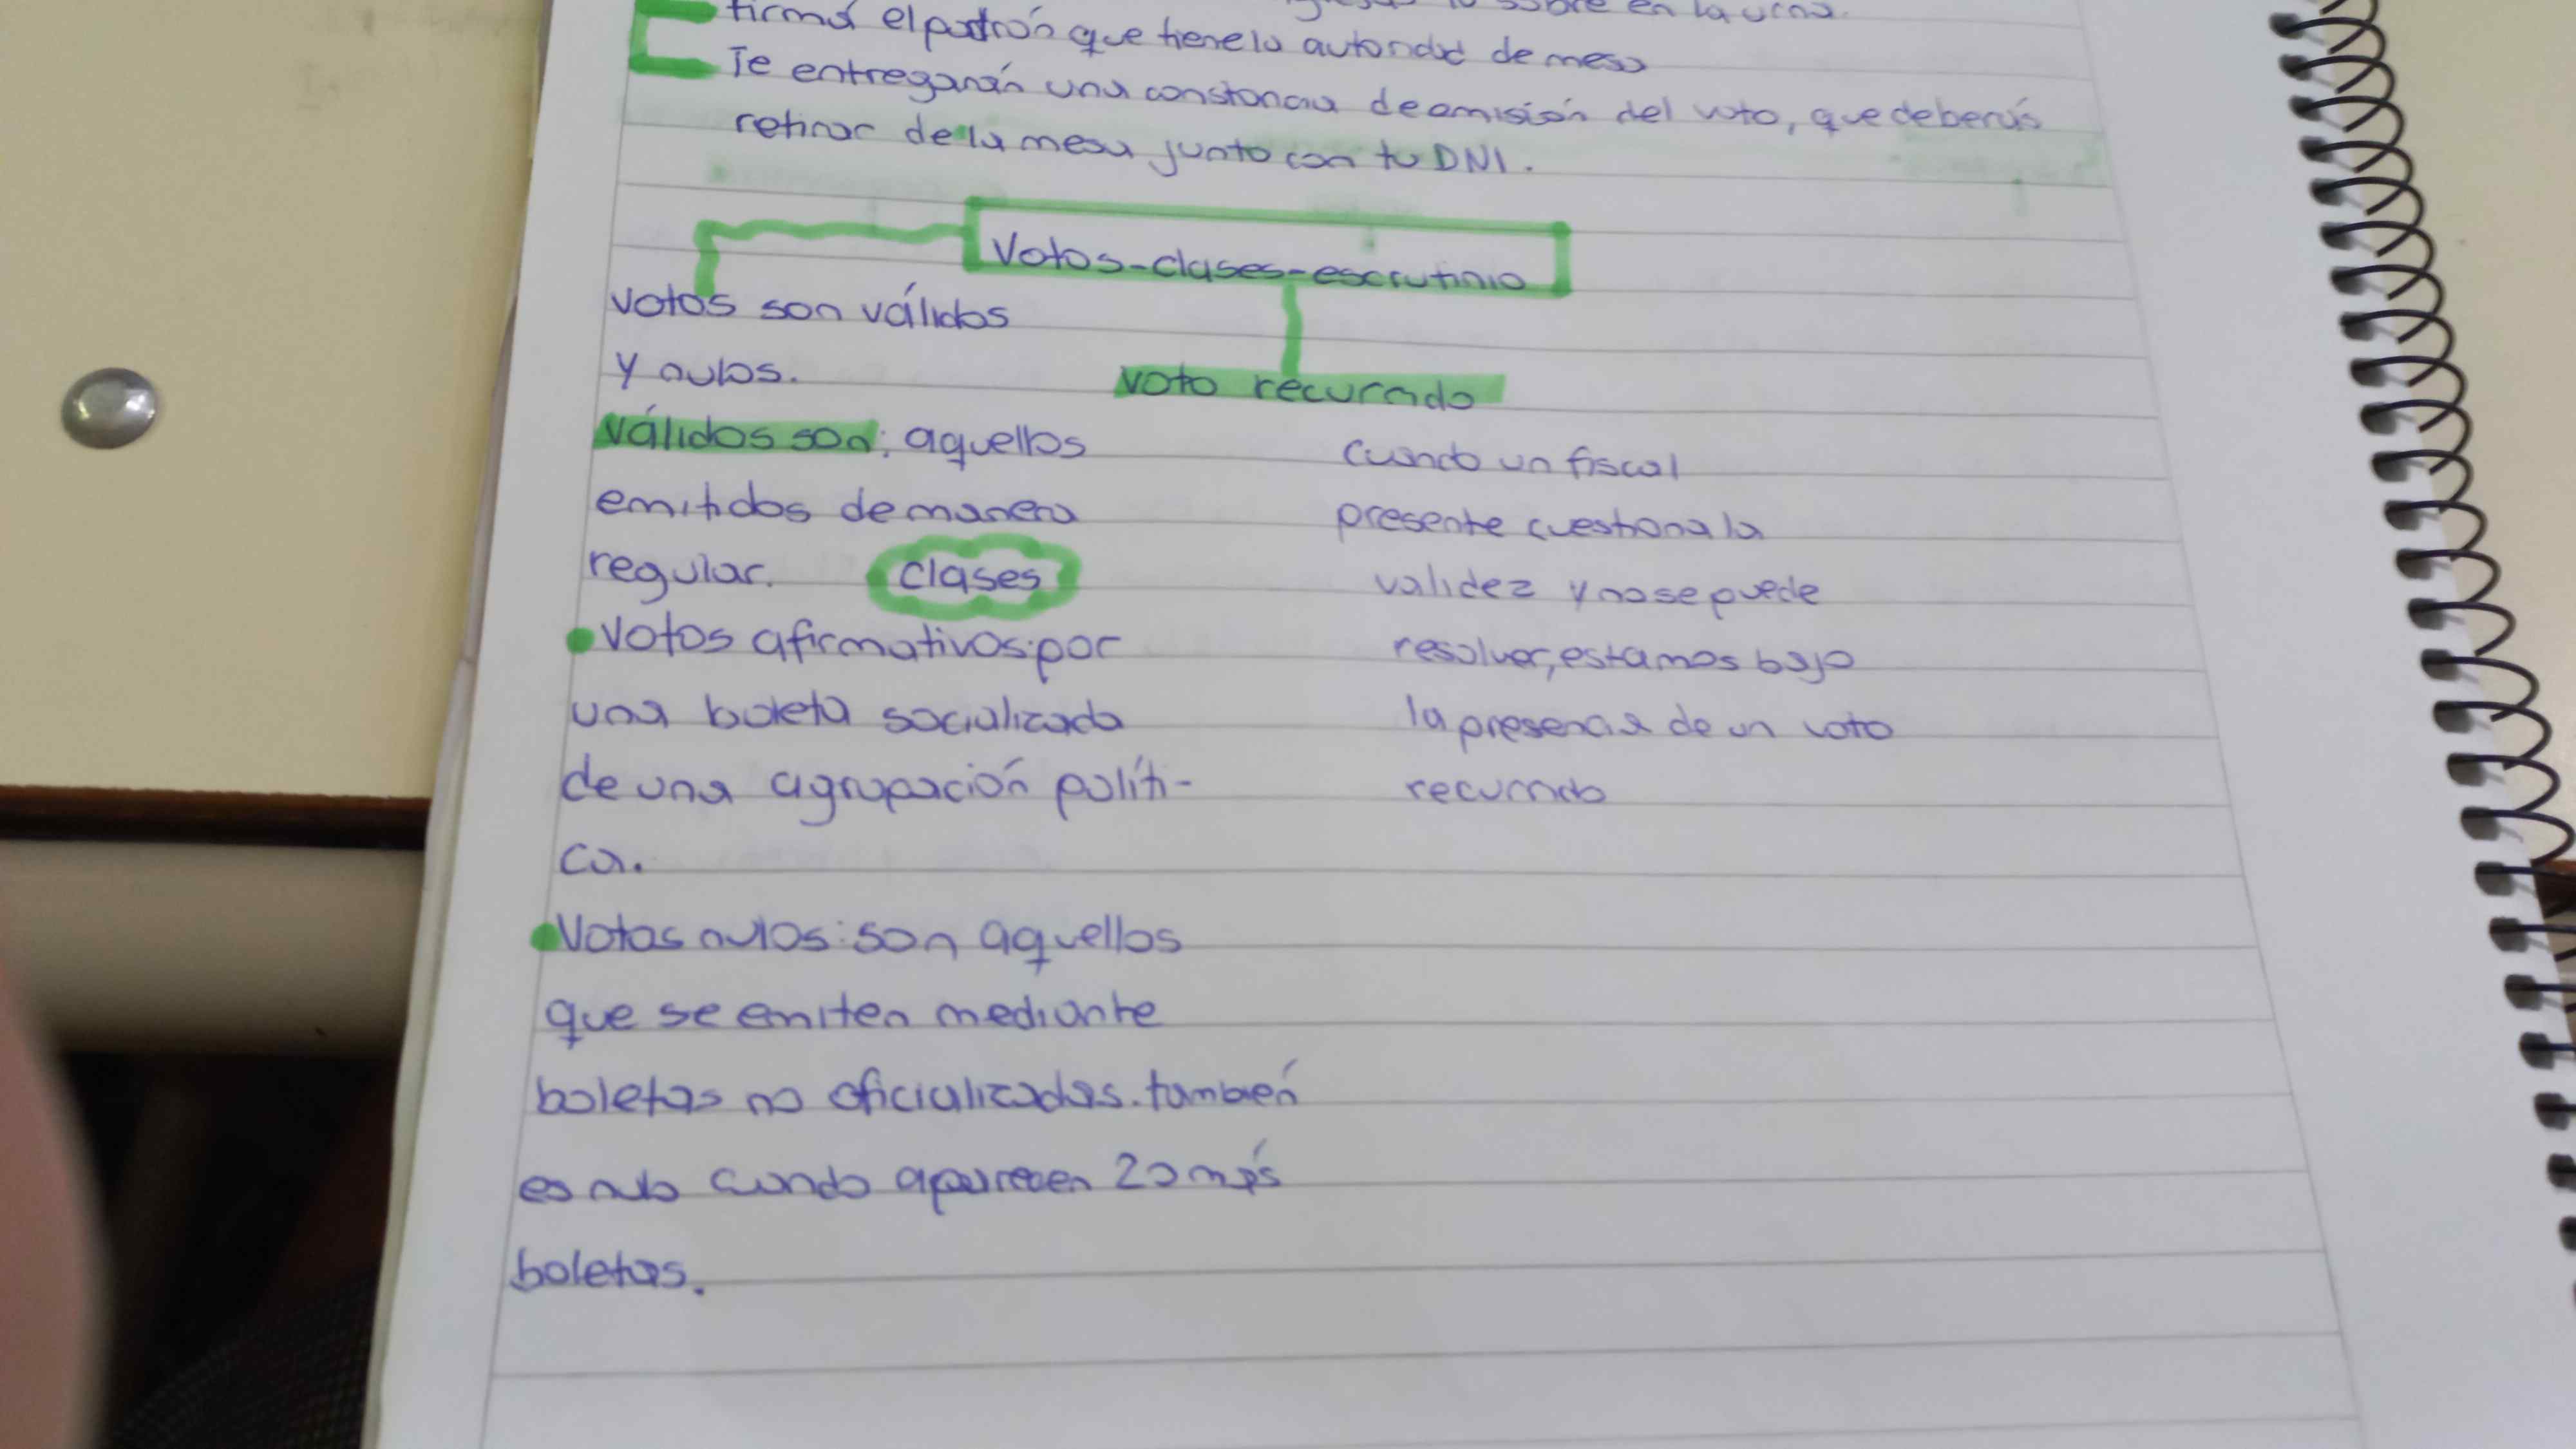 sobre en la urna.
firmá el padrón que tiene la autoridad de mesa
Te entregarán una constancia de emisión del voto, que deberás
retirar de la mesa junto con tu DNI.
Votos-clases-escrutinio
votos son válidos
y nulos.
válidos son: aquellos
emitidos de manera
regular. clases
• Votos afirmativos: por
una boleta socializada
de una agrupación políti-
ca.
• Votos nulos: son aquellos
que se emiten mediante
boletas no oficializadas. también
es nulo cuando aparecen 2 o más
boletas.
voto recurrado
Cuando un fiscal
presente cuestiona la
validez y no se puede
resolver, estamos bajo
la presencia de un voto
recurrido